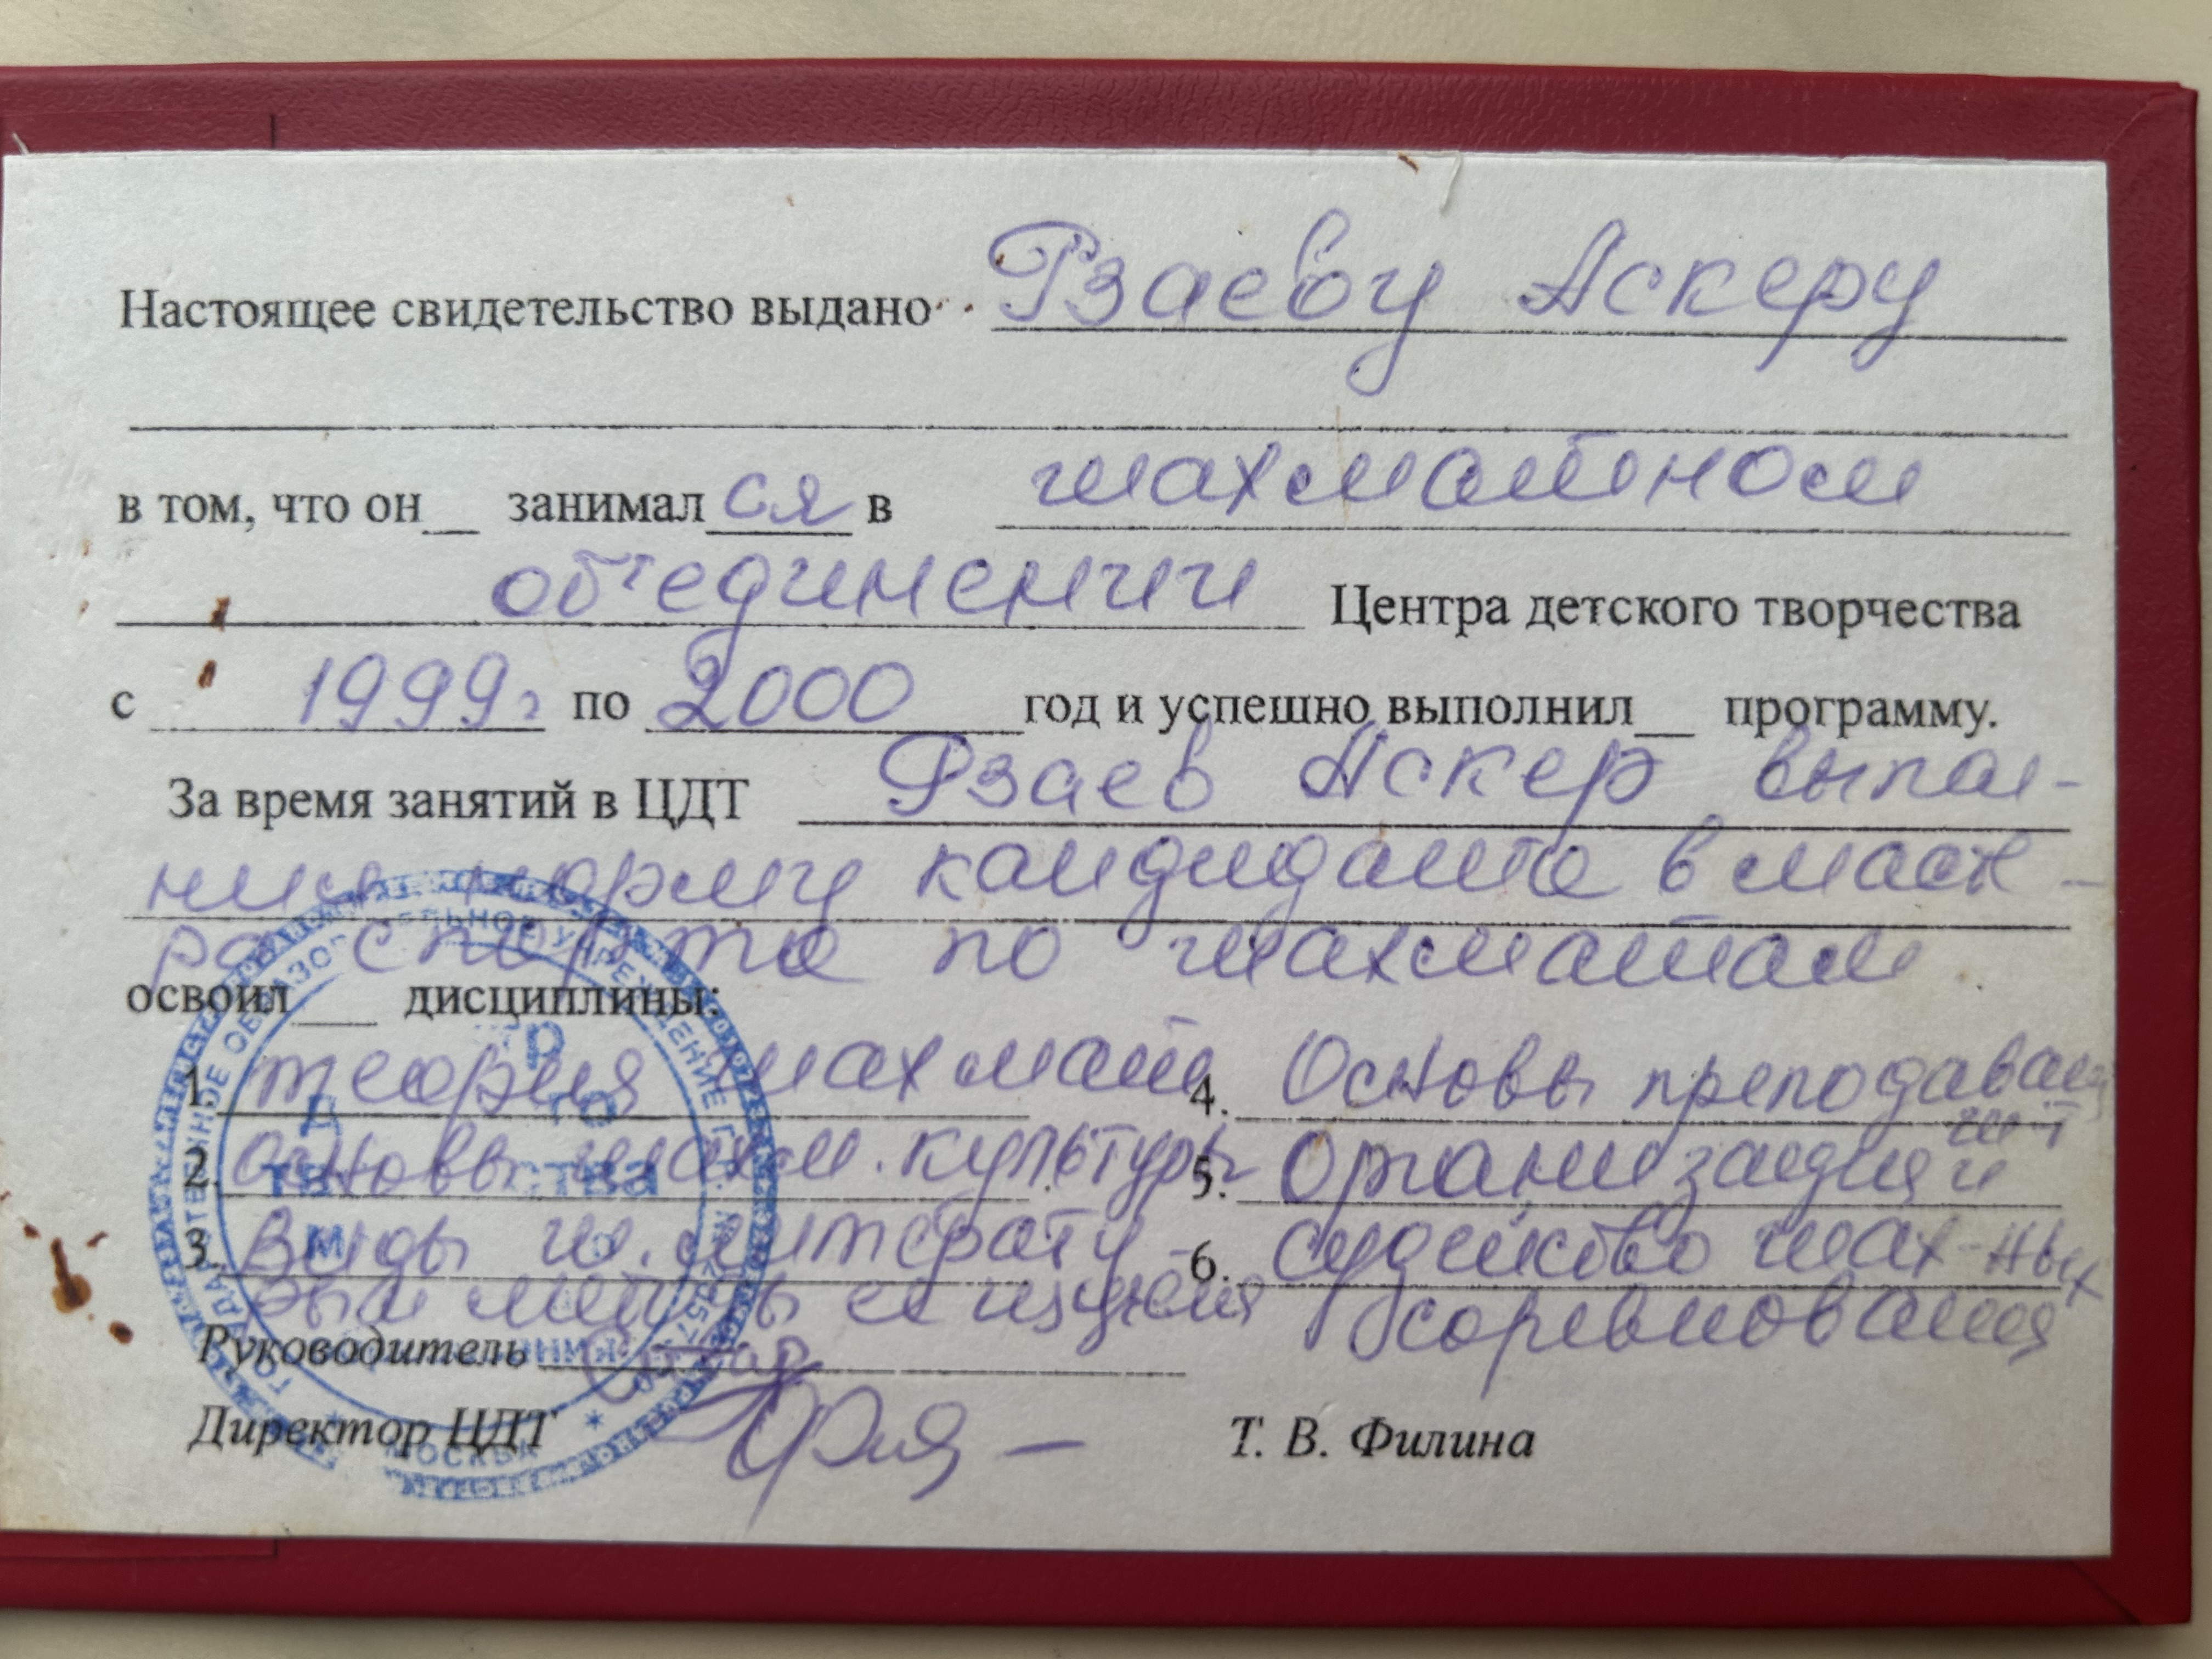 Настоящее свидетельство выдано Рзаеву Аскеру
в том, что он__ занимал ся в шахматном
объединении Центра детского творчества
с 1999г по 2000 год и успешно выполнил__ программу.
За время занятий в ЦДТ Рзаев Аскер выпол-
нил норму кандидата в масте-
ра спорта по шахматам
освоил___ дисциплины:
1. теория шахмат
2. основы шахм. культуры
3. виды ш. литерату-
ры и методы её изучения
4. Основы преподавания
5. Организация и
6. судейство шах-ных
соревнования
Руководитель
Директор ЦДТ Т. В. Филина
МОСКВА